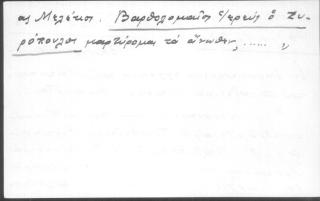 ας Μελέτιος. Βαρθολομαῖος ἱερεὺς ὁ Συ-
ρόπουλος μαρτύρομαι τὰ ἄνωθεν, ..... "